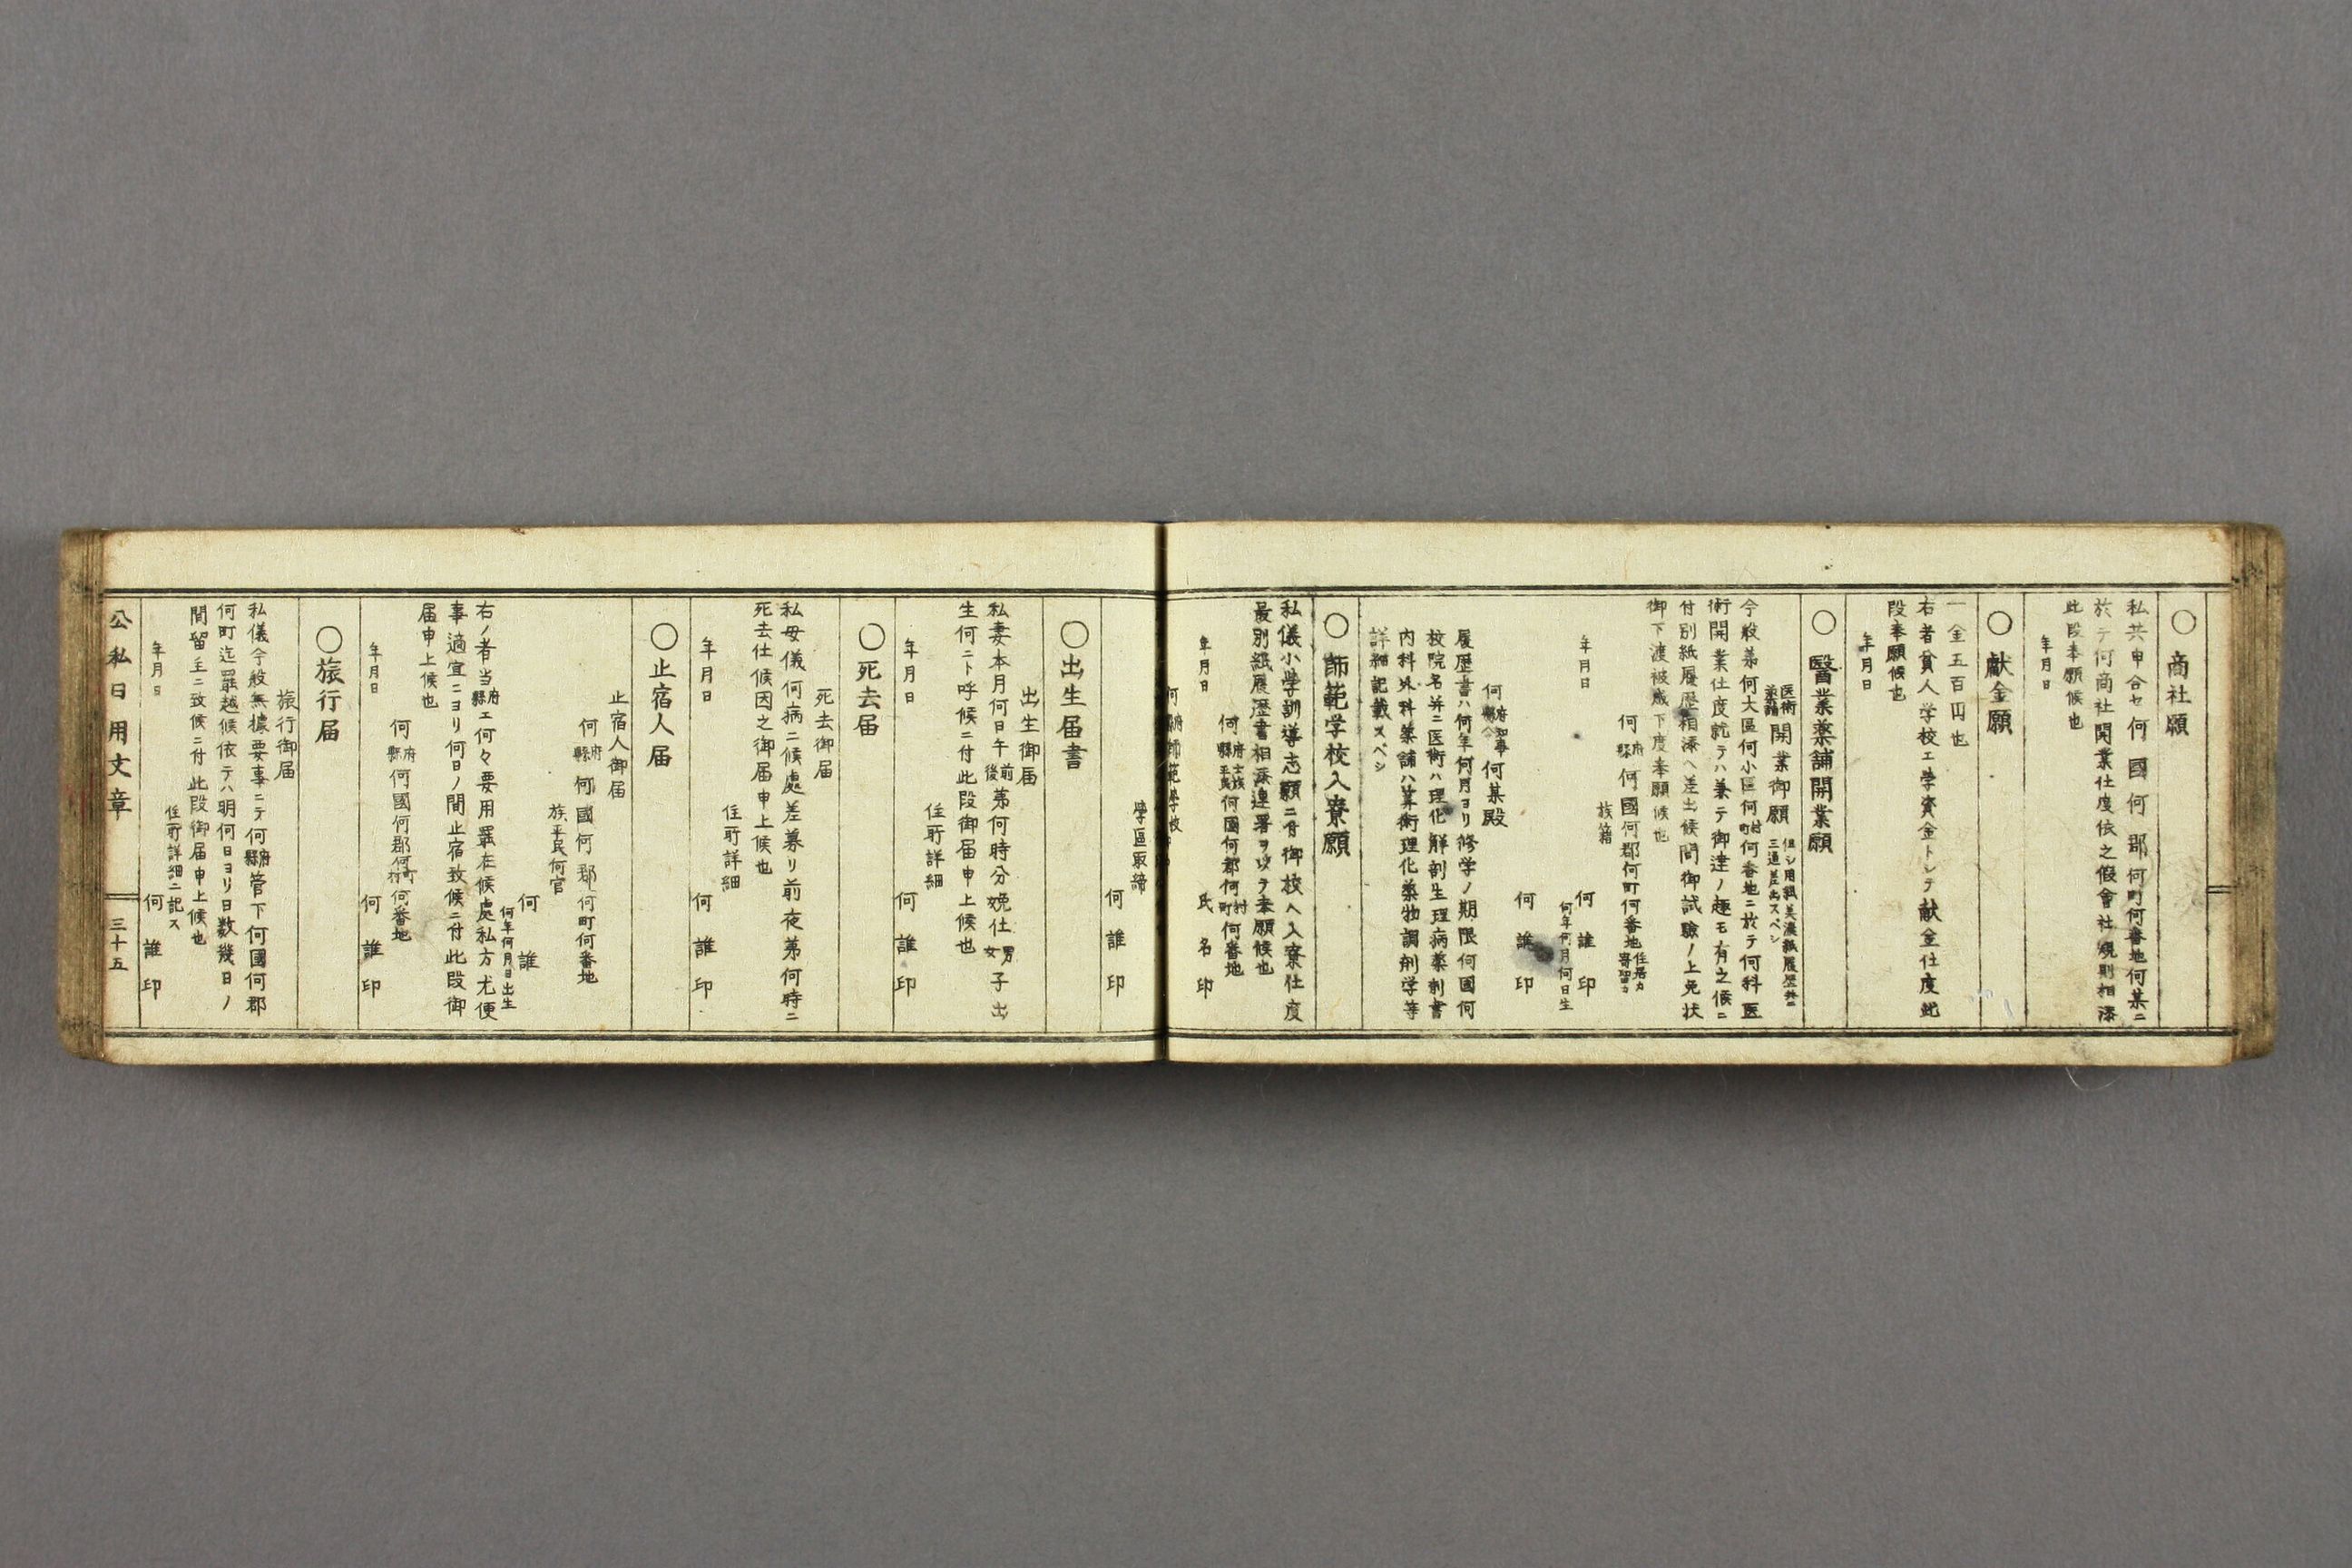 ○商社願
私共申合セ何國何郡何町何番地何某ニ
於テ何商社開業仕度依之假會社規則相添
此段奉願候也
年月日
○献金願
一金五百円也
右者貧人学校エ学資金トシテ献金仕度此
段奉願候也
年月日
○醫業薬舗開業願
医術薬舗開業御願 但シ用紙美濃紙履歴共ニ三通差出スベシ
今般第何大區何小區何村町何番地ニ於テ何科医
術開業仕度就テハ兼テ御達ノ趣モ有之候ニ
付別紙履歴相添ヘ差出候間御試験ノ上免状
御下渡被成下度奉願候也
何府縣何國何郡何町何番地住居カ寄留カ
族籍
年月日 何誰印
何年何月何日生
何誰印
何府縣知事何某殿
履歴書ハ何年何月ヨリ修学ノ期限何國何
校院名并ニ医術ハ理化解剖生理病薬剤書
内科外科薬舗ハ算術理化薬物調剤学等
詳細記載スベシ
○師範学校入寮願
私儀小學訓導志願ニ付御校ヘ入寮仕度
最別紙履歴書相添連署ヲ以テ奉願候也
何府縣士族平民何國何郡何村町何番地
年月日 氏名印
何府縣師範學校
學區取締
何誰印
○出生届書
出生御届
私妻本月何日午前後第何時分娩仕男女子出
生何ニト呼候ニ付此段御届申上候也
住所詳細
年月日 何誰印
○死去届
死去御届
私母儀何病ニ候處差募リ前夜第何時ニ
死去仕候因之御届申上候也
住所詳細
年月日 何誰印
○止宿人届
止宿人御届
何府縣何國何郡何町何番地
族平民何官
何誰
何年何月日出生
右ノ者当府縣エ何々要用罷在候處私方尤便
事適宜ニヨリ何日ノ間止宿致候ニ付此段御
届申上候也
何府縣何國何郡何町村何番地
年月日 何誰印
○旅行届
旅行御届
私儀今般無據要事ニテ何府縣管下何國何郡
何町迄罷越候依テハ明何日ヨリ日数幾日ノ
間留主ニ致候ニ付此段御届申上候也
住所詳細ニ記ス
年月日 何誰印
公私日用文章 三十五